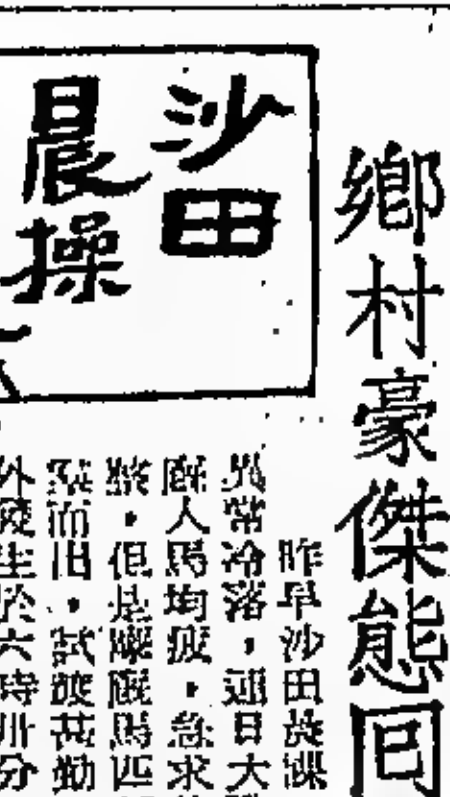 鄉村豪傑態回
沙田
晨操
昨早沙田晨課
異常冷落，連日大
廐人馬均疲，急求
但是 廐馬匹
而出，試 甚勤
外 生於六時卅分